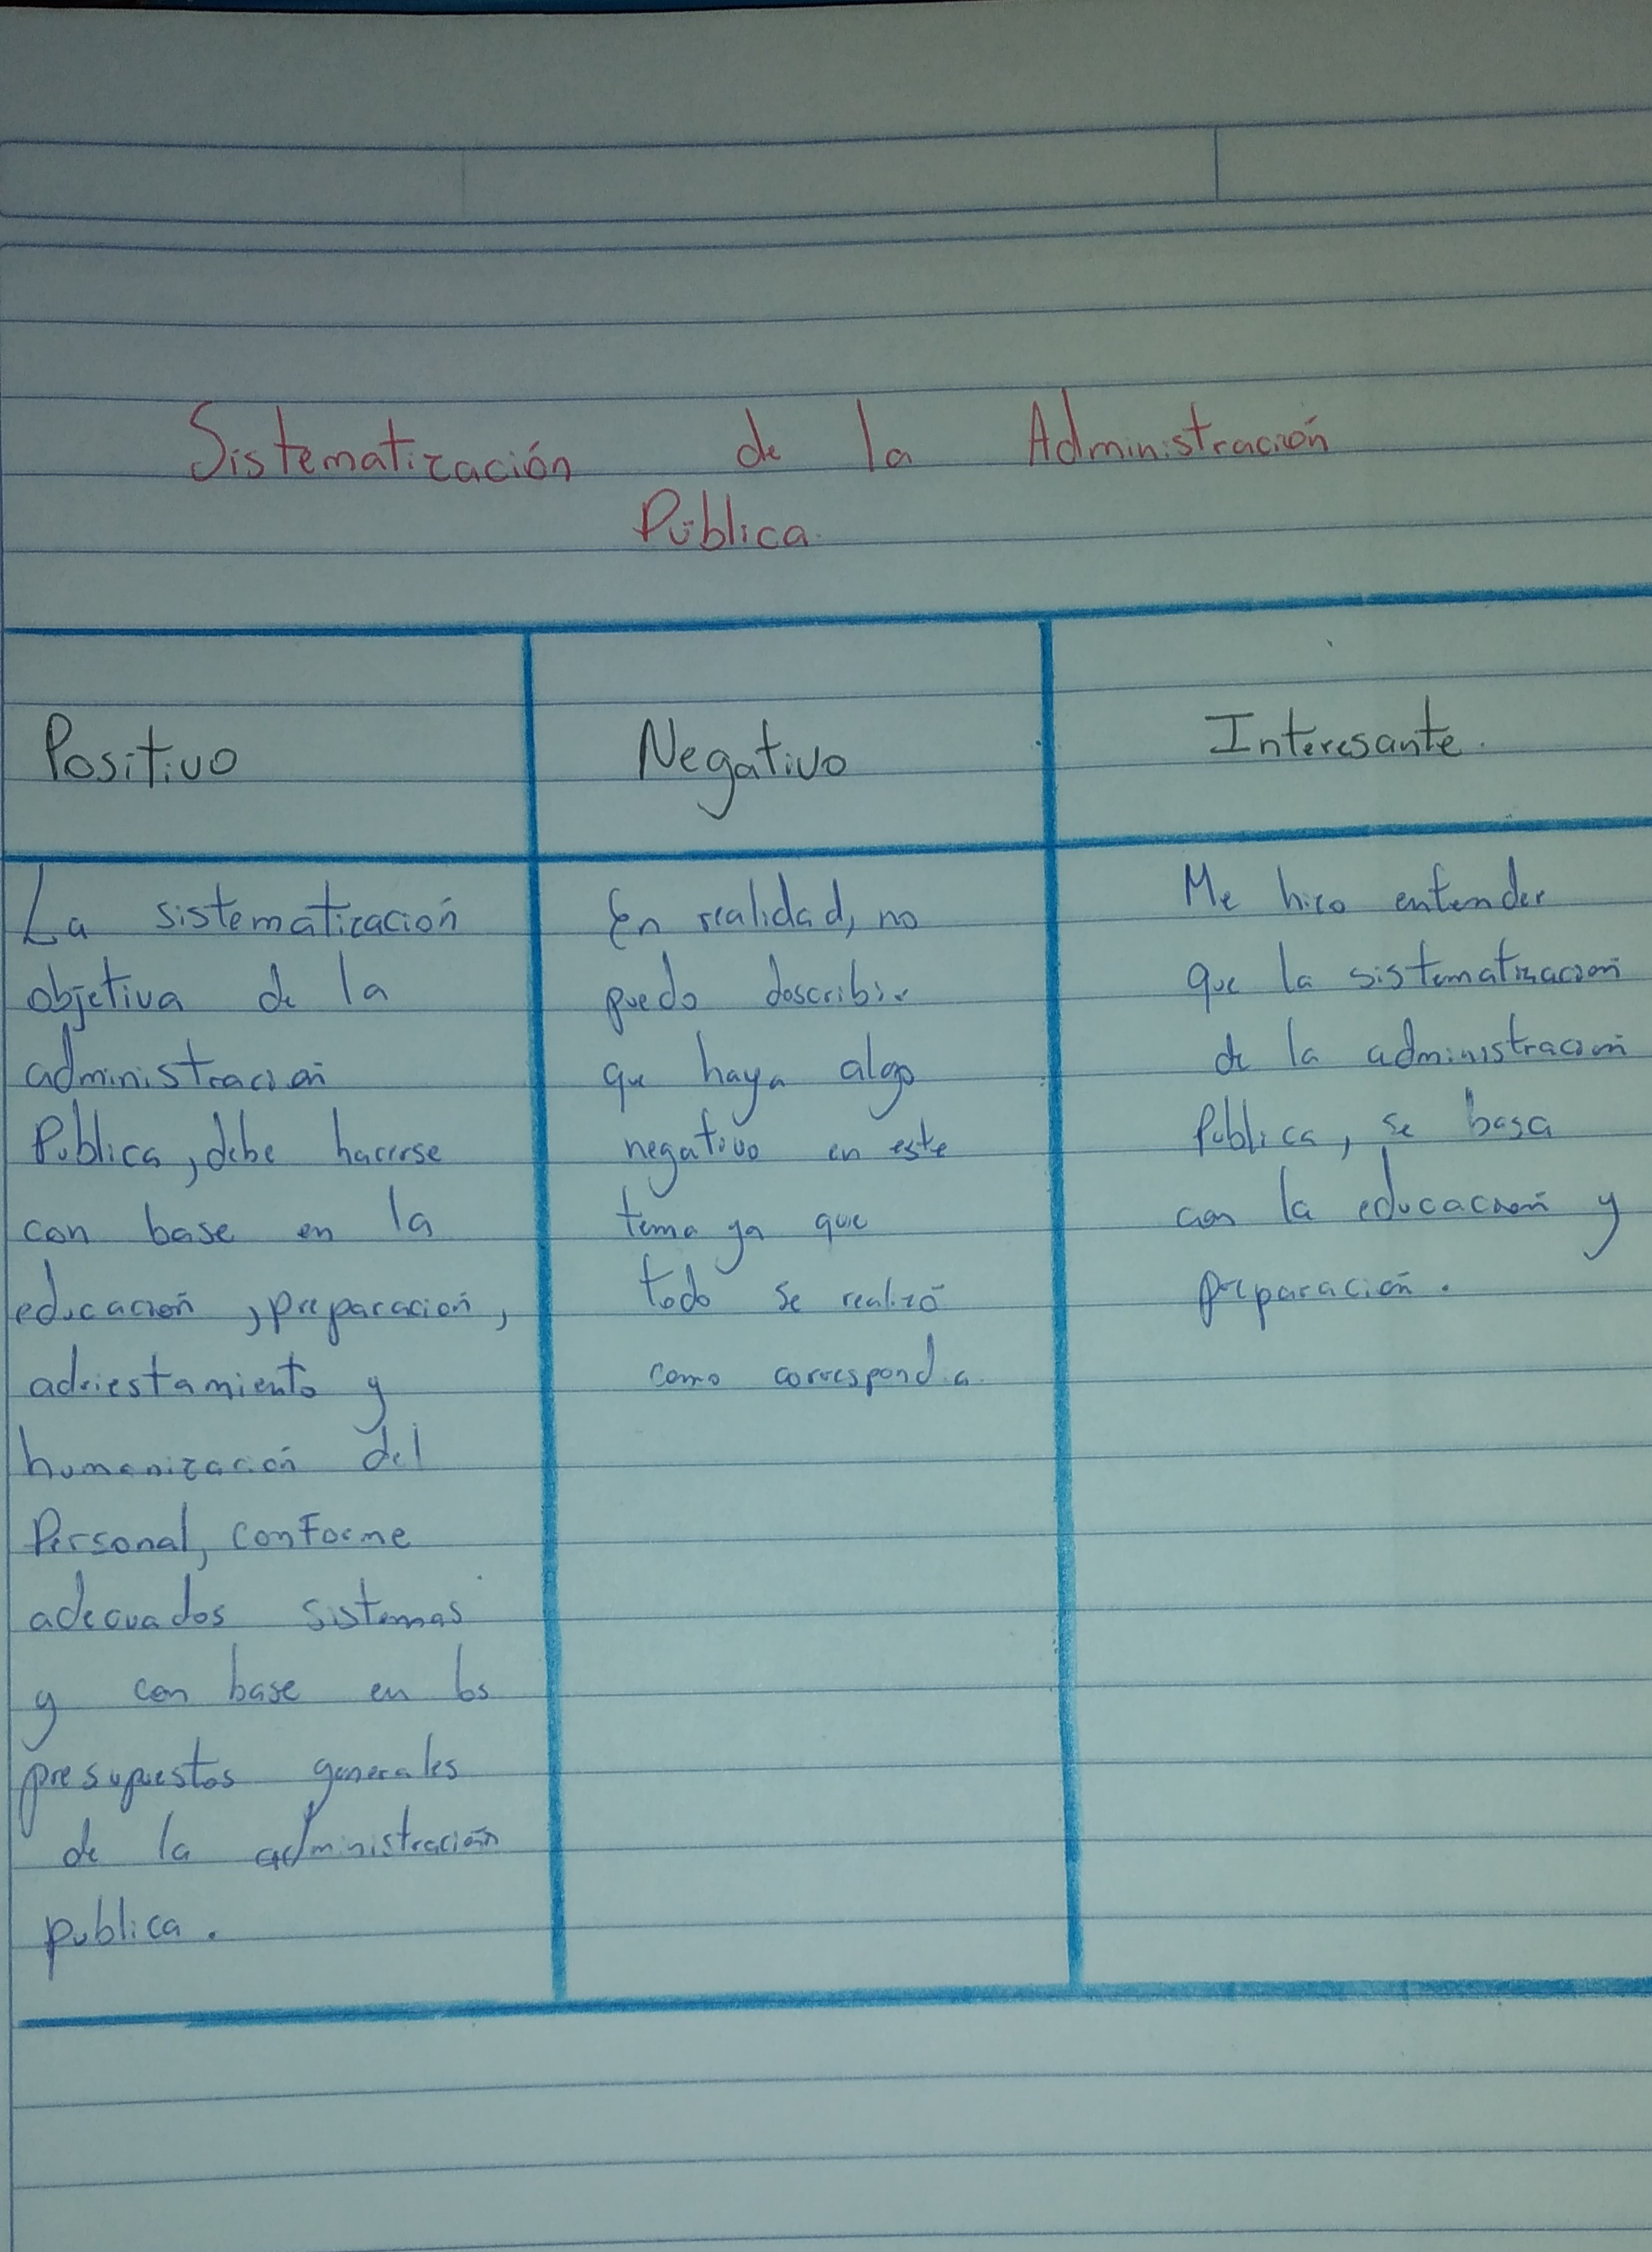 Sistematización de la Administración
Pública.
Positivo
Negativo
Interesante.
La sistematización
objetiva de la
administración
Publica, debe hacerse
con base en la
educación, preparación,
adriestamiento y
humanización del
Personal, conforme
adecuados sistemas
y con base en los
presupuestos generales
de la administración
publica.
En realidad, no
puedo describir
que haya algo
negativo en este
tema ya que
todo se realizó
como correspondia.
Me hizo entender
que la sistematización
de la administración
Publica, se basa
con la educación y
preparación.